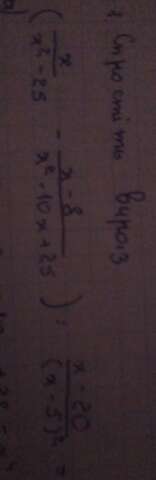 Спростіть вираз
(x/(x² - 25) - (x - 8)/(x² - 10x + 25)) : (x - 20)/(x - 5)² =